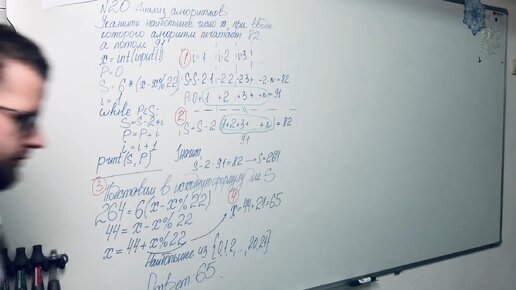 N20 Анализ алгоритмов
Укажите наибольшее число x, при вводе
которого алгоритм печатает 82,
а потом 91
x = int(input())
P=0
S=6*(x-x%22)
i=1
while P<S:
S=S-2*i
P=P+i
i=i+1
print(S,P)
① i=1 i=2 i=3
S=S-2·1-2·2-2·3+...-2·n=82
P=0+(1 +2 +3+...+n)=91
②
S=S-2 (1+2+3+ +n)=82
91
Значит,
S-2·91=82 → S=264
③ Подставим в исходную формулу для S
264=6(x-x%22)
44=x-x%22
x=44+x%22
④ x=44+21=65
Наибольшее из {0,1,2,...,20,21}
Ответ 65